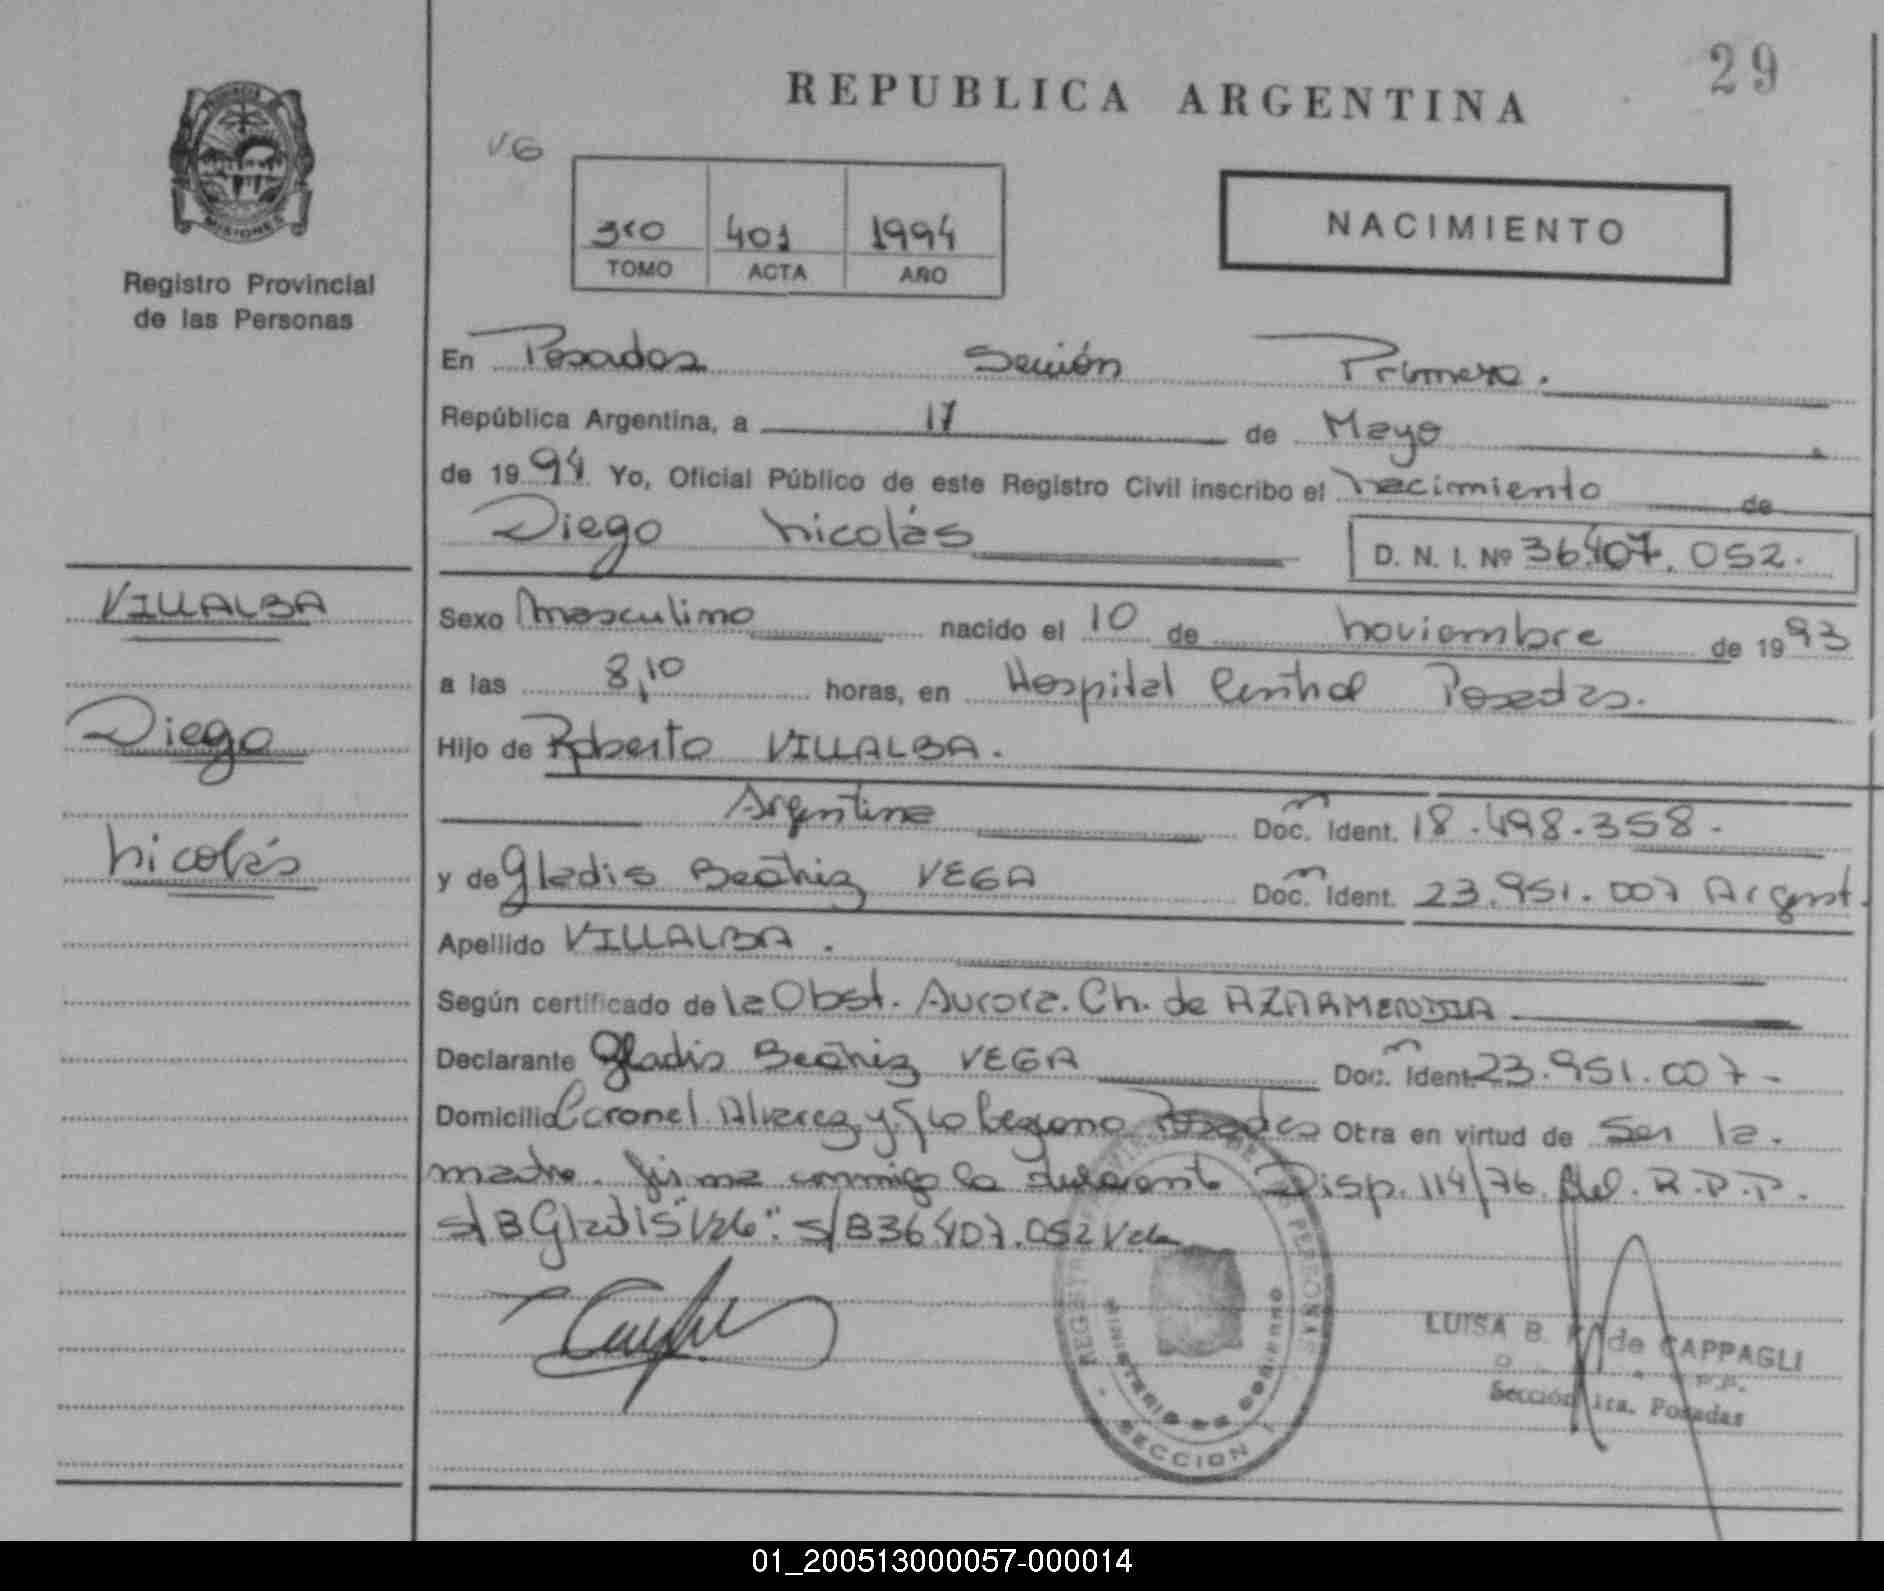 29
REPUBLICA ARGENTINA
PROVINCIA DE
MISIONES
Registro Provincial
de las Personas
VG
3ro 401 1994
TOMO ACTA AÑO
NACIMIENTO
En Posadas Sección Primera.
República Argentina, a 17 de Mayo
de 1994 Yo, Oficial Público de este Registro Civil inscribo el nacimiento de
Diego Nicolás D. N. I. Nº 36.407.052.
VILLALBA
Diego
Nicolás
Sexo Masculino nacido el 10 de noviembre de 1993
a las 8,10 horas, en Hospital Central Posadas.
Hijo de Roberto VILLALBA.
Argentino Doc. Ident. 18.498.358.
y de Gladis Beatriz VEGA Doc. Ident. 23.951.007 Argent.
Apellido VILLALBA.
Según certificado de la Obst. Aurora. Ch. de AZARMENDIA
Declarante Gladis Beatriz VEGA Doc. Ident. 23.951.007-
Domicilio Coronel Alvarez y Posadas Otra en virtud de Ser la
madre. firma conmigo la declarante Disp. 114/76 del R.P.P.
s/B Gladis "V26": s/B 36.407.052 Vale
REGISTRO PROVINCIAL DE LAS PERSONAS
MINISTERIO DE GOBIERNO
SECCION 1
LUISA B. de CAPPAGLI
Sección 1ra. Posadas
01_200513000057-000014